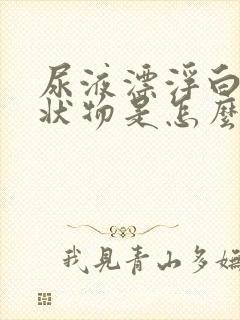 尿液漂浮白
状物是怎麼
我見青山多嫵